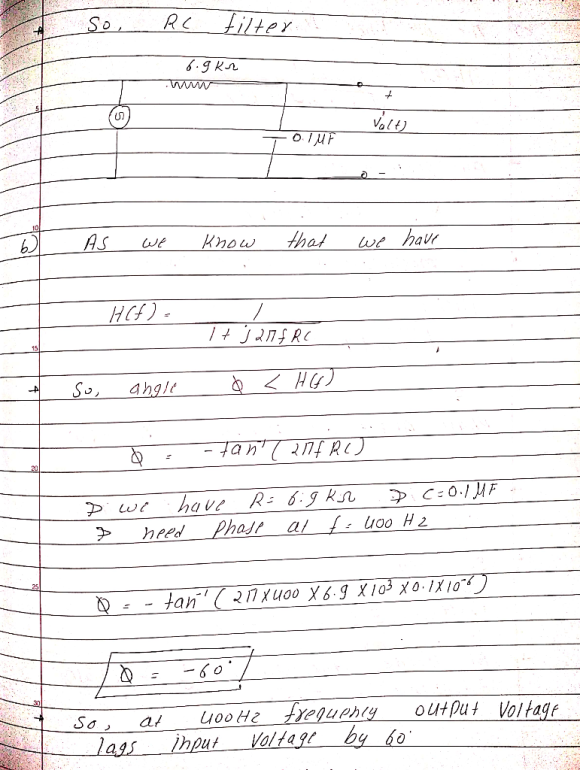 So, RC filter
6.9 KΩ
+
Vo(t)
0.1 μF
-
b) As we know that we have
H(f) = 1 / 1 + j2πfRC
So, angle φ < H(f)
φ = -tan⁻¹ (2πfRC)
⇒ we have R = 6.9 KΩ ⇒ C = 0.1 μF
⇒ need phase at f = 400 Hz
φ = - tan⁻¹ (2π X 400 X 6.9 X 10³ X 0.1 X 10⁻⁶)
φ = -60°
So, at 400 Hz frequency output voltage
lags input voltage by 60°